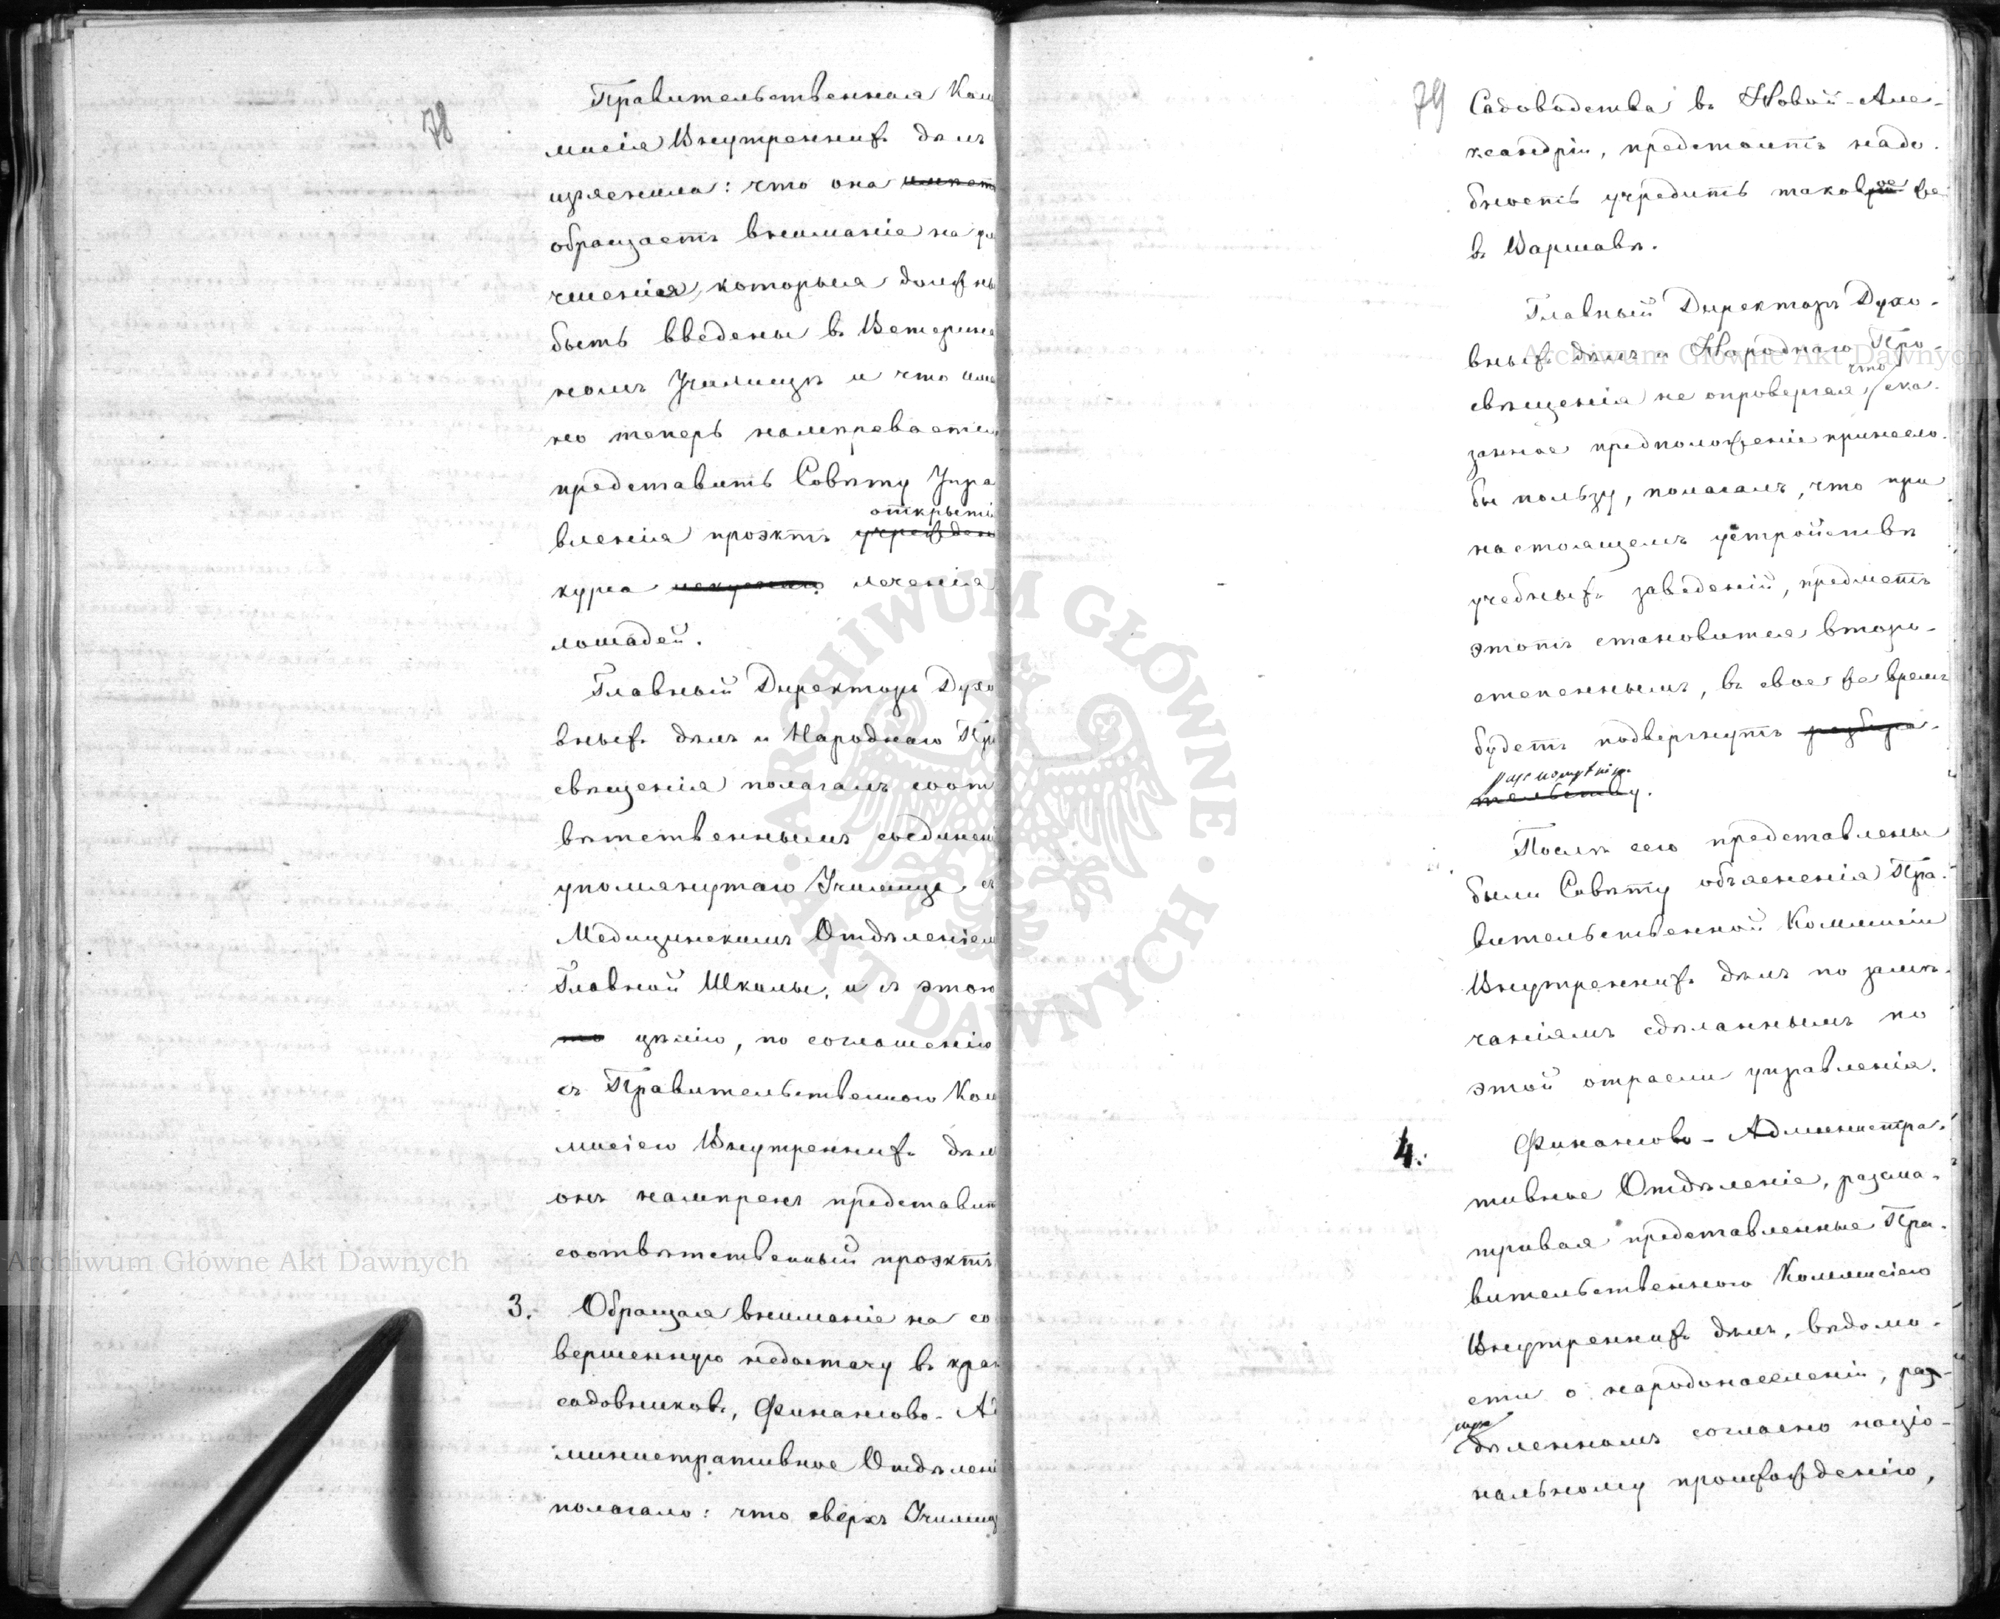 78
Правительственная Ком
мисія Внутреннихъ дѣлъ
изъяснила: что она имѣетъ
обращаетъ вниманіе на ул
чшенія, которыя должны
быть введены въ Ветерина
номъ Училищѣ и что им
но теперь намѣревается
представить Совѣту Упра
открыті
вленія проэктъ учрежден
курса леченія
лошадей.
Главный Директоръ Духо
вныхъ дѣлъ и Народнаго Пр
свѣщенія полагалъ соот
вѣтственнымъ соединен
упомянутаго Училища съ
Медицинскимъ Отдѣленіем
Главной Школы, и съ этою
то цѣлію, по соглашенію
съ Правительственною Ком
мисіею Внутреннихъ дѣл
онъ намѣренъ представит
соотвѣтственный проэктъ
3. Обращая вниманіе на со
вершенную недостачу въ кра
садовниковъ, Финансово-Ад
министративное Отдѣлені
полагало: что сверхъ Училищ
79
Садоводства въ Новой-Але-
ксандріи, предстоитъ надо-
бность учредить таковое же
въ Варшавѣ.
Главный Директоръ Духо-
вныхъ дѣлъ и Народнаго Про-
что
свѣщенія не опровергая, ска-
занное предположеніе принесло-
бы пользу, полагалъ, что при
настоящемъ устройствѣ
учебныхъ заведеній, предметъ
этотъ становится второ-
степеннымъ, въ свое же время
будетъ подвергнутъ разбира-
разсмотрѣнію.
тельству.
Послѣ сего представлены
были Совѣту объясненія Пра-
вительственной Коммисіи
Внутреннихъ дѣлъ по замѣ-
чаніямъ сдѣланнымъ по
этой отрасли управленія.
4. Финансово-Администра-
тивное Отдѣленіе, разсма-
тривая представленные Пра-
вительственною Коммисіею
Внутреннихъ дѣлъ, вѣдомо-
сти о народонаселеніи, раз-
дѣленномъ согласно націо-
нальному происхожденію,
Archiwum Główne Akt Dawnych
Archiwum Główne Akt Dawnych
ARCHIWUM GŁÓWNE · AKT DAWNYCH ·